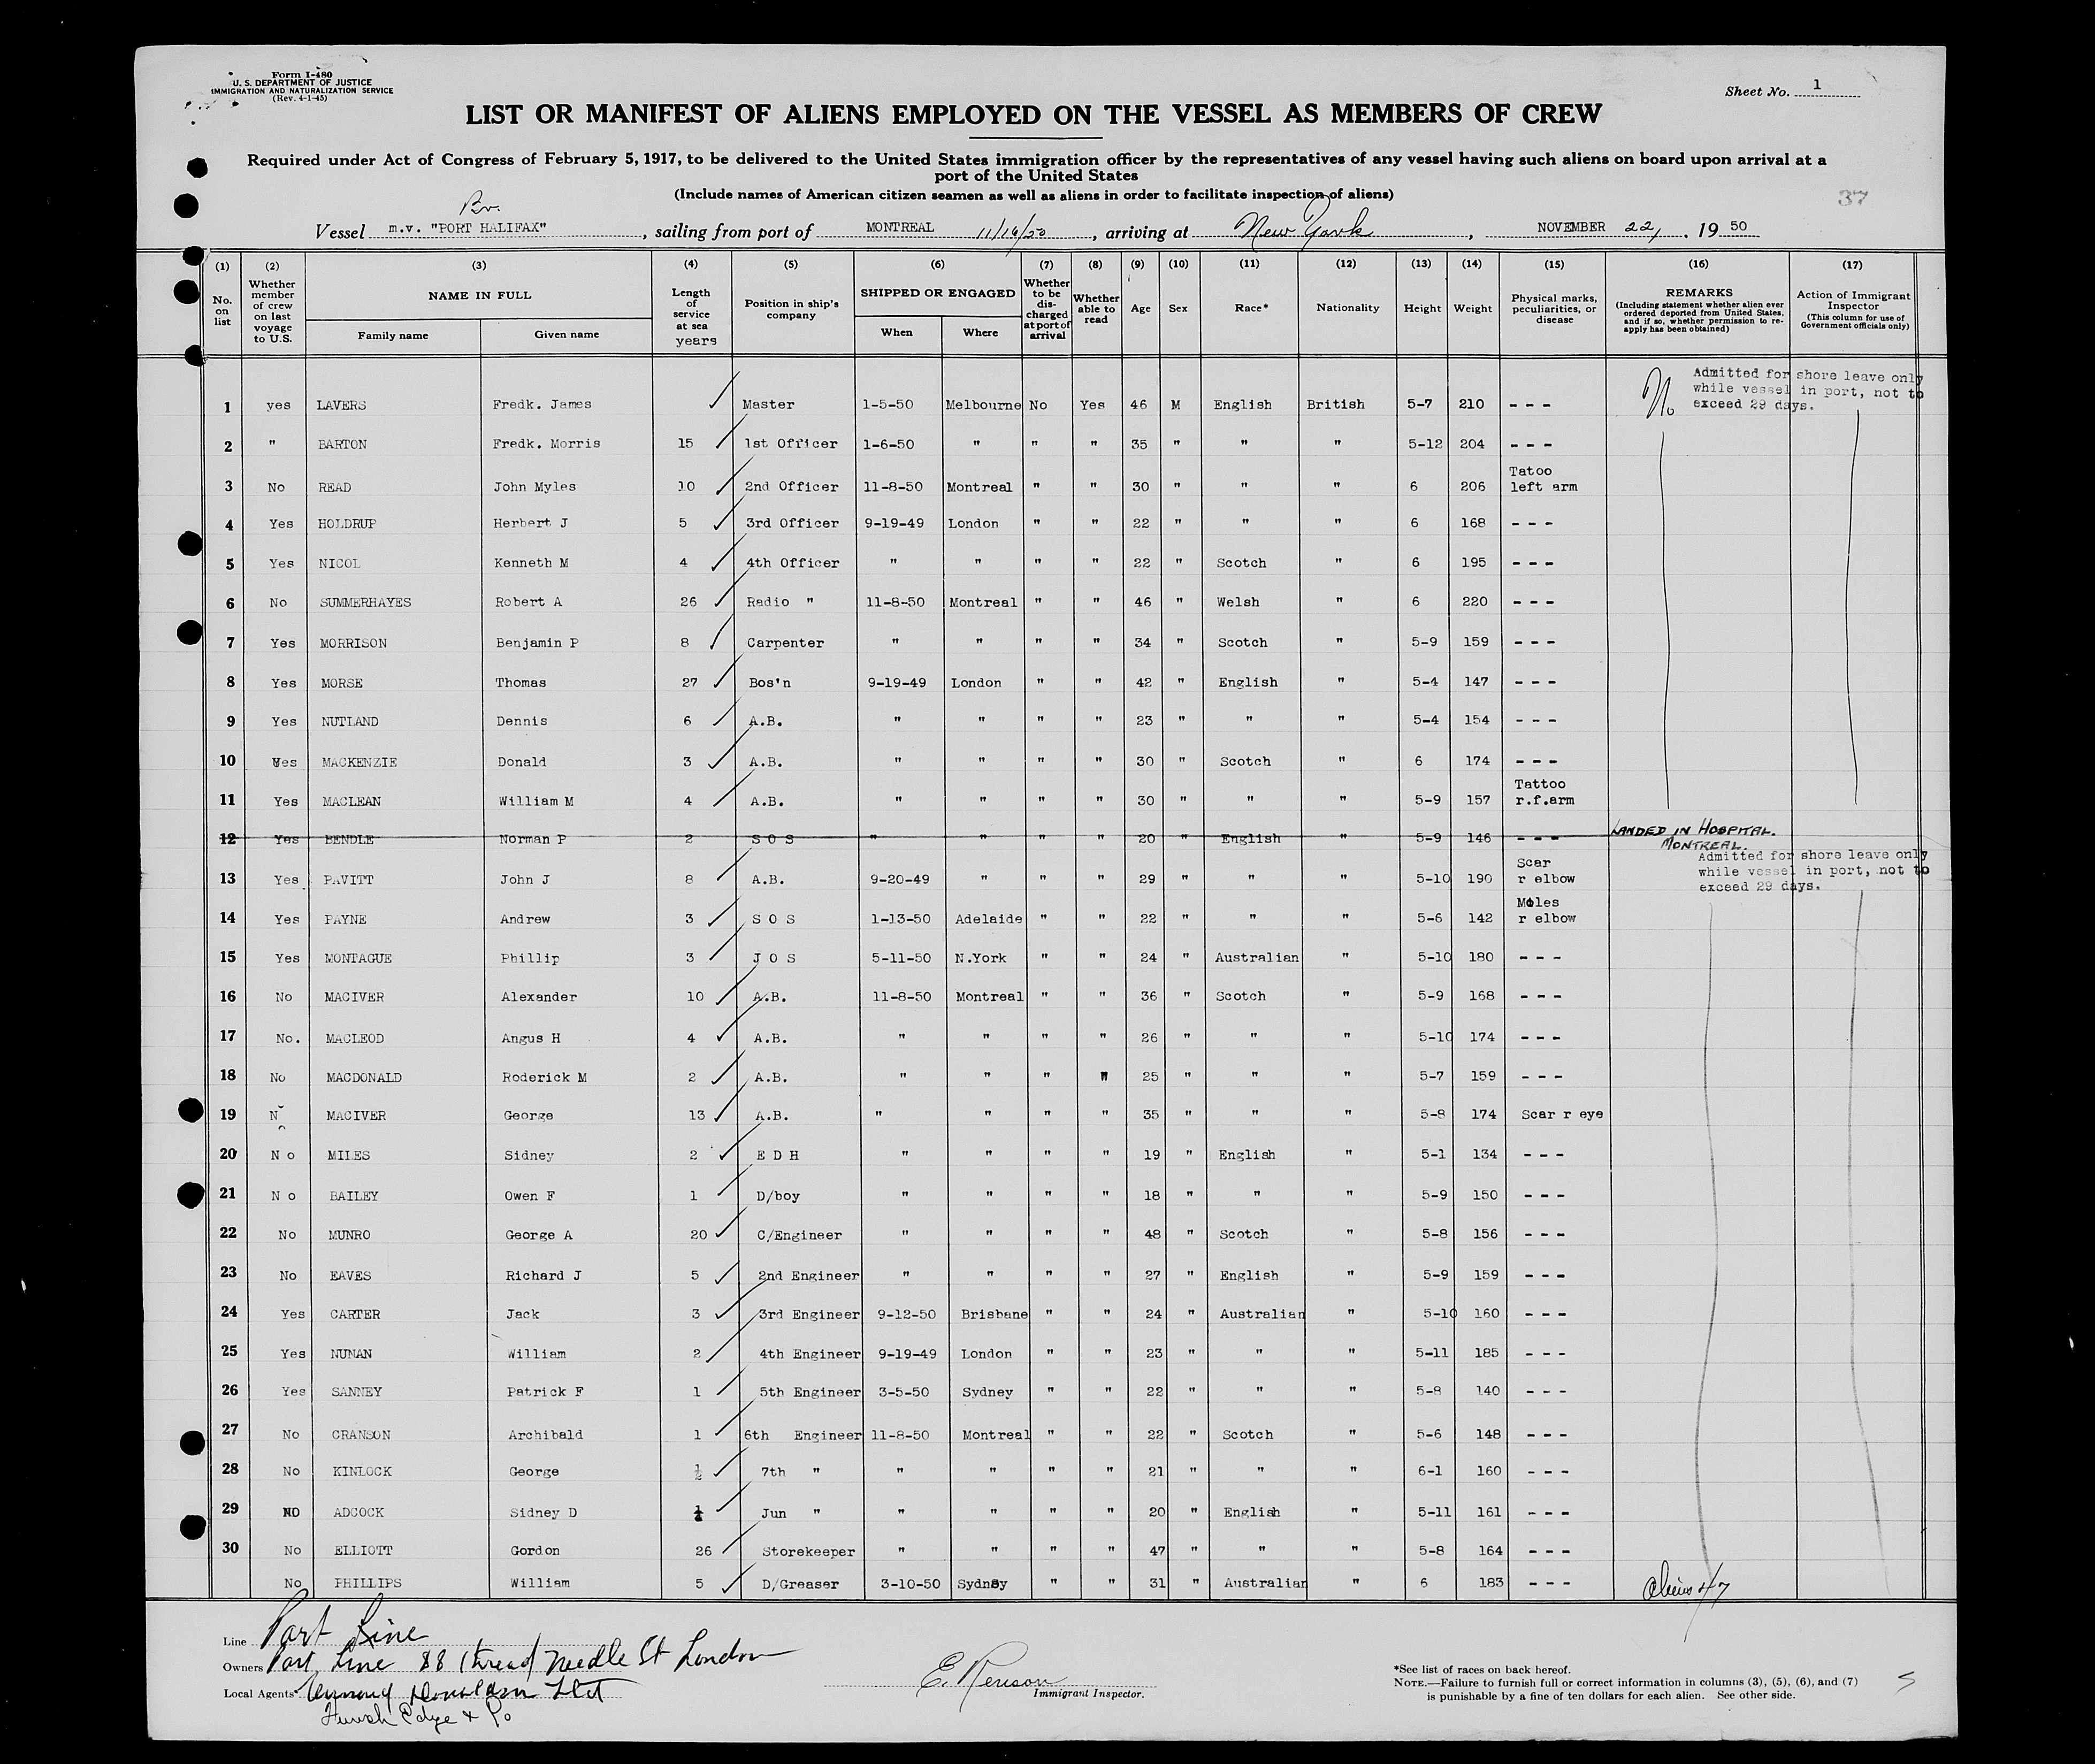 Form I-480
U. S. DEPARTMENT OF JUSTICE
IMMIGRATION AND NATURALIZATION SERVICE
(Rev. 4-1-45)
Sheet No. 1
LIST OR MANIFEST OF ALIENS EMPLOYED ON THE VESSEL AS MEMBERS OF CREW
Required under Act of Congress of February 5, 1917, to be delivered to the United States immigration officer by the representatives of any vessel having such aliens on board upon arrival at a
port of the United States
(Include names of American citizen seamen as well as aliens in order to facilitate inspection of aliens)
37
Br.
Vessel m.v. "PORT HALIFAX", sailing from port of MONTREAL 11/16/50, arriving at New York, NOVEMBER 22, 1950
(1) (2) (3) (4) (5) (6) (7) (8) (9) (10) (11) (12) (13) (14) (15) (16) (17)
No. on list | Whether member of crew on last voyage to U.S. | NAME IN FULL Family name Given name | Length of service at sea years | Position in ship's company | SHIPPED OR ENGAGED When Where | Whether to be discharged at port of arrival | Whether able to read | Age | Sex | Race* | Nationality | Height | Weight | Physical marks, peculiarities, or disease | REMARKS (Including statement whether alien ever ordered deported from United States, and if so, whether permission to reapply has been obtained) | Action of Immigrant Inspector (This column for use of Government officials only)
1 yes LAVERS Fredk. James Master 1-5-50 Melbourne No Yes 46 M English British 5-7 210 - - - No Admitted for shore leave only while vessel in port, not to exceed 29 days.
2 " BARTON Fredk. Morris 15 1st Officer 1-6-50 " " " 35 " " " 5-12 204 - - -
3 No READ John Myles 10 2nd Officer 11-8-50 Montreal " " 30 " " " 6 206 Tatoo left arm
4 Yes HOLDRUP Herbert J 5 3rd Officer 9-19-49 London " " 22 " " " 6 168 - - -
5 Yes NICOL Kenneth M 4 4th Officer " " " " 22 " Scotch " 6 195 - - -
6 No SUMMERHAYES Robert A 26 Radio " 11-8-50 Montreal " " 46 " Welsh " 6 220 - - -
7 Yes MORRISON Benjamin P 8 Carpenter " " " " 34 " Scotch " 5-9 159 - - -
8 Yes MORSE Thomas 27 Bos'n 9-19-49 London " " 42 " English " 5-4 147 - - -
9 Yes NUTLAND Dennis 6 A.B. " " " " 23 " " " 5-4 154 - - -
10 Yes MACKENZIE Donald 3 A.B. " " " " 30 " Scotch " 6 174 - - -
11 Yes MACLEAN William M 4 A.B. " " " " 30 " " " 5-9 157 Tattoo r.f.arm
12 Yes BENDLE Norman P 2 S O S " " " " 20 " English " 5-9 146 - - - LANDED IN HOSPITAL. MONTREAL.
13 Yes PAVITT John J 8 A.B. 9-20-49 " " " 29 " " " 5-10 190 Scar r elbow Admitted for shore leave only while vessel in port, not to exceed 29 days.
14 Yes PAYNE Andrew 3 S O S 1-13-50 Adelaide " " 22 " " " 5-6 142 Moles r elbow
15 Yes MONTAGUE Phillip 3 J O S 5-11-50 N.York " " 24 " Australian " 5-10 180 - - -
16 No MACIVER Alexander 10 A.B. 11-8-50 Montreal " " 36 " Scotch " 5-9 168 - - -
17 No. MACLEOD Angus H 4 A.B. " " " " 26 " " " 5-10 174 - - -
18 No MACDONALD Roderick M 2 A.B. " " " " 25 " " " 5-7 159 - - -
19 No MACIVER George 13 A.B. " " " " 35 " " " 5-8 174 Scar r eye
20 N o MILES Sidney 2 E D H " " " " 19 " English " 5-1 134 - - -
21 N o BAILEY Owen F 1 D/boy " " " " 18 " " " 5-9 150 - - -
22 No MUNRO George A 20 C/Engineer " " " " 48 " Scotch " 5-8 156 - - -
23 No EAVES Richard J 5 2nd Engineer " " " " 27 " English " 5-9 159 - - -
24 Yes CARTER Jack 3 3rd Engineer 9-12-50 Brisbane " " 24 " Australian " 5-10 160 - - -
25 Yes NUNAN William 2 4th Engineer 9-19-49 London " " 23 " " " 5-11 185 - - -
26 Yes SANNEY Patrick F 1 5th Engineer 3-5-50 Sydney " " 22 " " " 5-8 140 - - -
27 No CRANSON Archibald 1 6th Engineer 11-8-50 Montreal " " 22 " Scotch " 5-6 148 - - -
28 No KINLOCK George ½ 7th " " " " " 21 " " " 6-1 160 - - -
29 NO ADCOCK Sidney D Jun " " " " " 20 " English " 5-11 161 - - -
30 No ELLIOTT Gordon 26 Storekeeper " " " " 47 " " " 5-8 164 - - -
No PHILLIPS William 5 D/Greaser 3-10-50 Sydney " " 31 " Australian " 6 183 - - - Aliens 47
Line Port Line
Owners Port Line 88 Thread Needle St London
Local Agents Donaldson
Edye & Co
E. Renison
Immigrant Inspector.
*See list of races on back hereof.
NOTE.—Failure to furnish full or correct information in columns (3), (5), (6), and (7)
is punishable by a fine of ten dollars for each alien. See other side.
5